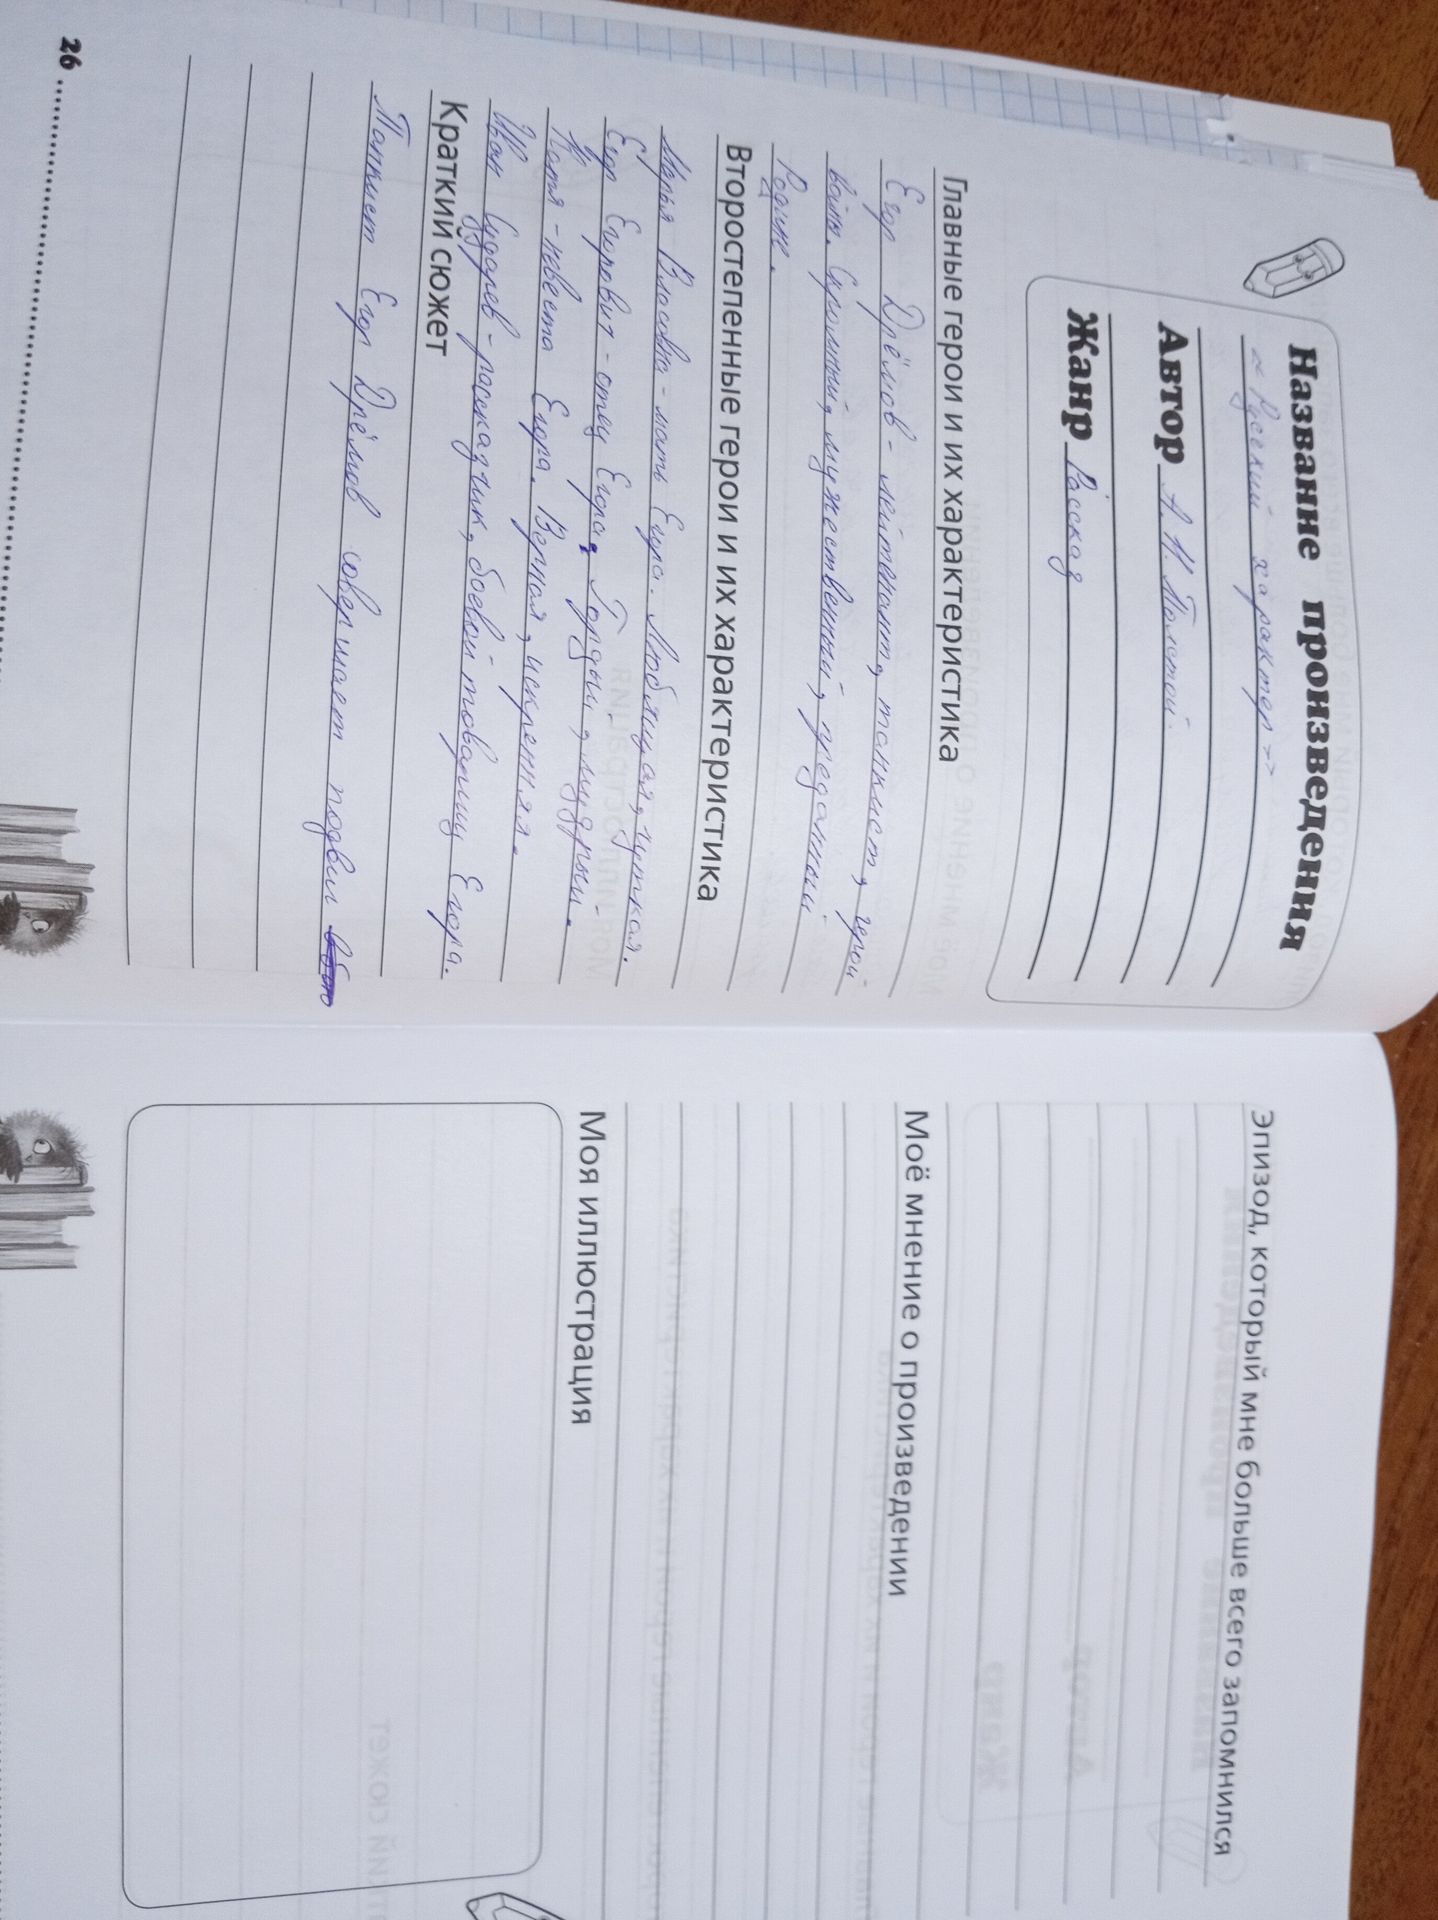 Название произведения
« Русский характер »
Автор А. Н. Толстой.
Жанр Рассказ
Главные герои и их характеристика
Егор Дрёмов - лейтенант, танкист, герой
войны. Скромный, мужественный, преданный
Родине.
Второстепенные герои и их характеристика
Марья Власовна - мать Егора. Любящая, чуткая.
Егор Егорович - отец Егора. Гордый, мудрый.
Катя - невеста Егора. Верная, искренняя.
Иван Сударев - рассказчик, боевой товарищ Егора.
Краткий сюжет
Танкист Егор Дрёмов совершает подвиг
26
Эпизод, который мне больше всего запомнился
Моё мнение о произведении
Моя иллюстрация